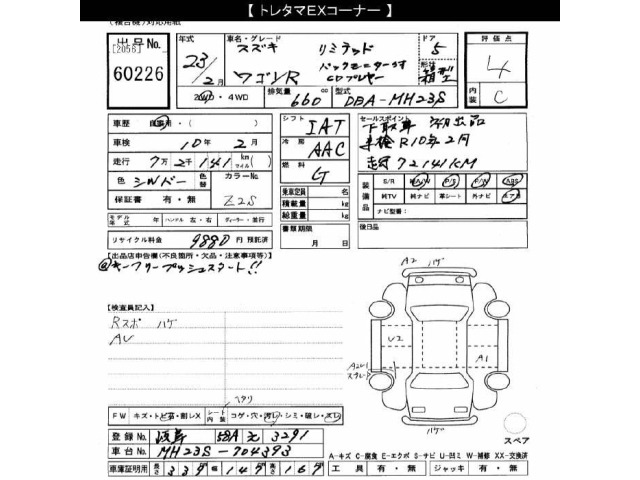 【 トレタマEXコーナー 】
(複合機)対応用紙
出品No. [2056] 60226
年式 23/2月
車名・グレード スズキ リミテッド
ワゴンR バックモニター付 CDプレヤー
ドア 5
形状 箱型
2WD・4WD 排気量 660 cc 型式 DBA-MH23S
評価点 4
内装 C
車歴 自家用・( )
車検 10年 2月
走行 7万2千141 km (マイル)
色 シルバー 色替 カラーNo. Z2S
保証書 有・無
モデル年式 年 ハンドル 左・右 ディーラー・並行
リサイクル料金 9880 円 預託済
シフト IAT
冷房 AAC
燃料 G
乗車定員 名
積載量 kg
総重量 kg
書類期限 月 日
セールスポイント
下取車 初出品
車検 R10年2月
走行 72141KM
装備品 S/R 純AW P/S P/W ABS
純TV 純ナビ 革シート 外ナビ エアB
ナビ型番:
後日品
【出品店申告欄(不良箇所・欠品・注意事項等)】
@キーフリープッシュスタート!!
【検査員記入】
Rスポ ハゲ
AU
ヘタリ
A2 ハゲ
U2
A1
ハゲ
スペア
FW キズ・トビ石・割レX シート内装 コゲ・穴・汚レ・シミ・破レ・スレ
登録No. 岐阜 581A え 3291
車台No. MH23S-704393
車庫証明用 長さ 339 幅 147 高さ 167
A-キズ C-腐食 E-エクボ S-サビ U-凹ミ W-補修 XX-交換済
工具 有・無 ジャッキ 有・無